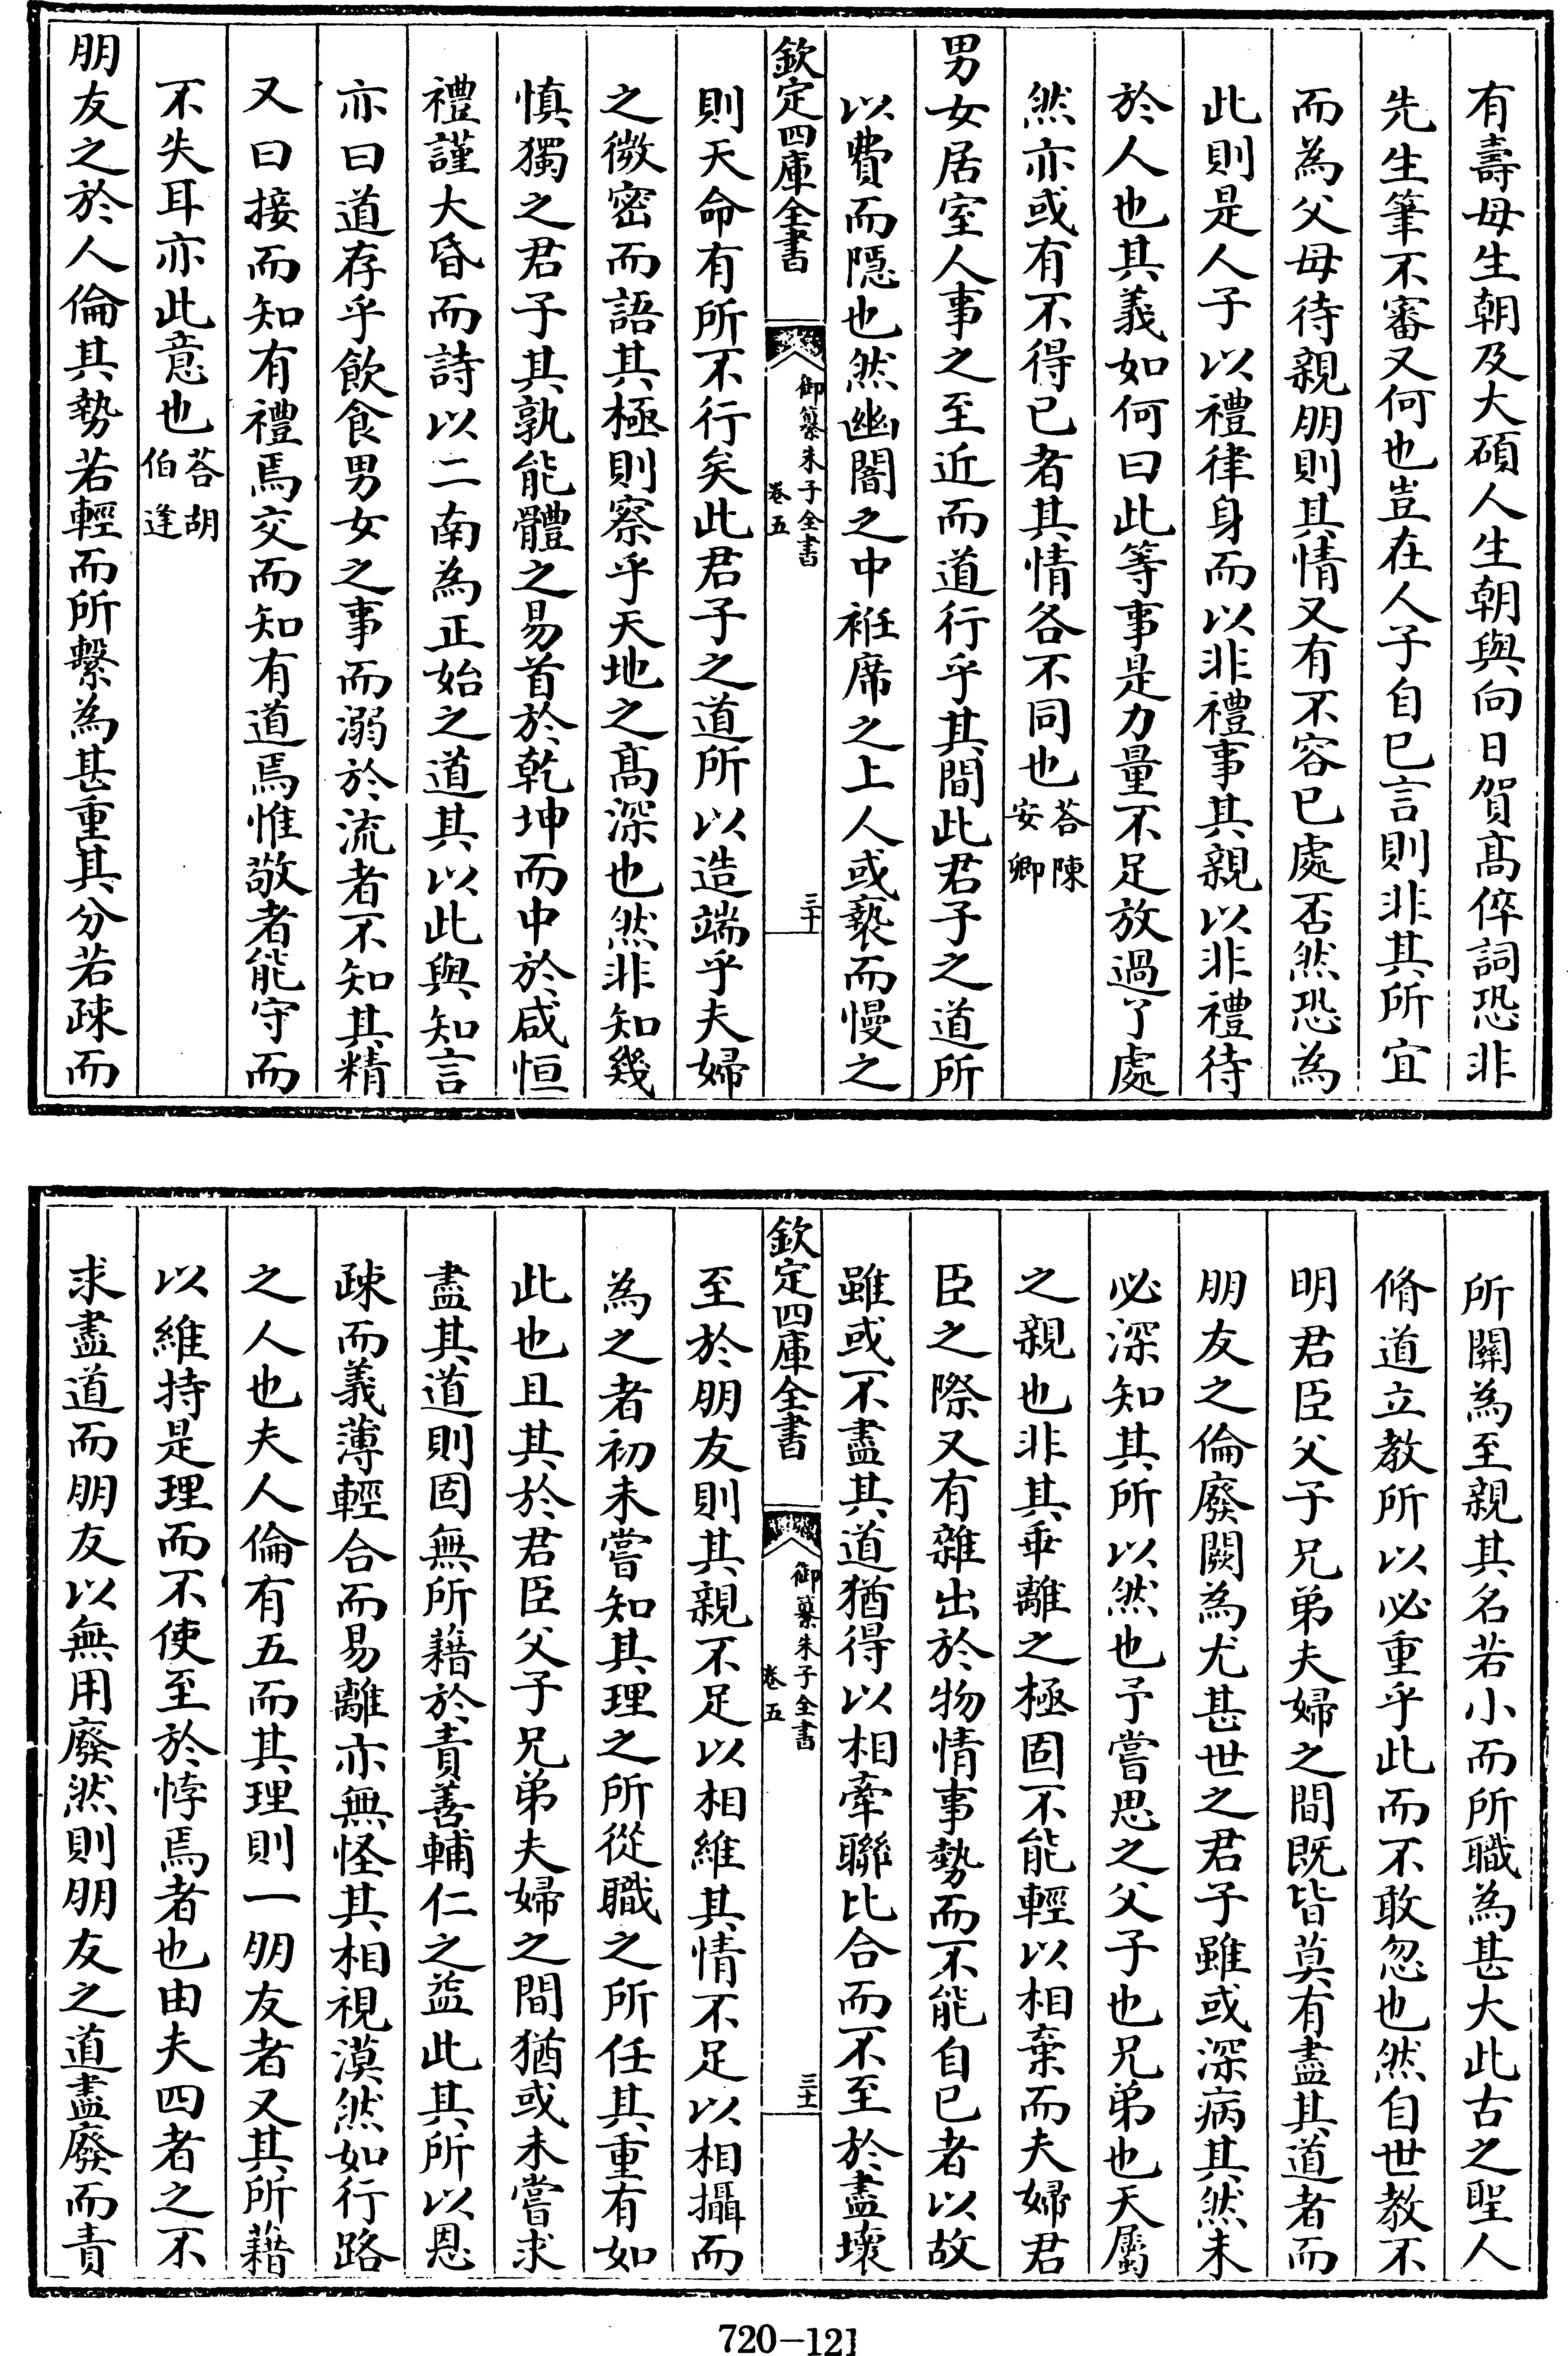 有壽母生朝及大碩人生朝與向日賀髙倅詞恐非
先生筆不審又何也豈在人子自已言則非其所宜
而為父母待親朋則其情又有不容已處否然恐為
此則是人子以禮律身而以非禮事其親以非禮待
於人也其義如何曰此等事是力量不足放過了處
然亦或有不得已者其情各不同也荅陳安卿
男女居室人事之至近而道行乎其間此君子之道所
以費而隠也然幽闇之中袵席之上人或褻而慢之
欽定四庫全書
御纂朱子全書
卷五
三十
則天命有所不行矣此君子之道所以造端乎夫婦
之微密而語其極則察乎天地之髙深也然非知幾
慎獨之君子其孰能體之易首於乾坤而中於咸恒
禮謹大昏而詩以二南為正始之道其以此與知言
亦曰道存乎飲食男女之事而溺於流者不知其精
又曰接而知有禮焉交而知有道焉惟敬者能守而
不失耳亦此意也荅胡伯逢
朋友之於人倫其勢若輕而所繫為甚重其分若疎而
所關為至親其名若小而所職為甚大此古之聖人
脩道立教所以必重乎此而不敢忽也然自世教不
明君臣父子兄弟夫婦之間既皆莫有盡其道者而
朋友之倫廢闕為尤甚世之君子雖或深病其然未
必深知其所以然也予嘗思之父子也兄弟也天屬
之親也非其乖離之極固不能輕以相棄而夫婦君
臣之際又有雜出於物情事勢而不能自已者以故
雖或不盡其道猶得以相牽聯比合而不至於盡壞
欽定四庫全書
御纂朱子全書
卷五
三十一
至於朋友則其親不足以相維其情不足以相攝而
為之者初未嘗知其理之所從職之所任其重有如
此也且其於君臣父子兄弟夫婦之間猶或未嘗求
盡其道則固無所藉於責善輔仁之益此其所以恩
疎而義薄輕合而易離亦無怪其相視漠然如行路
之人也夫人倫有五而其理則一朋友者又其所藉
以維持是理而不使至於悖焉者也由夫四者之不
求盡道而朋友以無用廢然則朋友之道盡廢而責
720-121